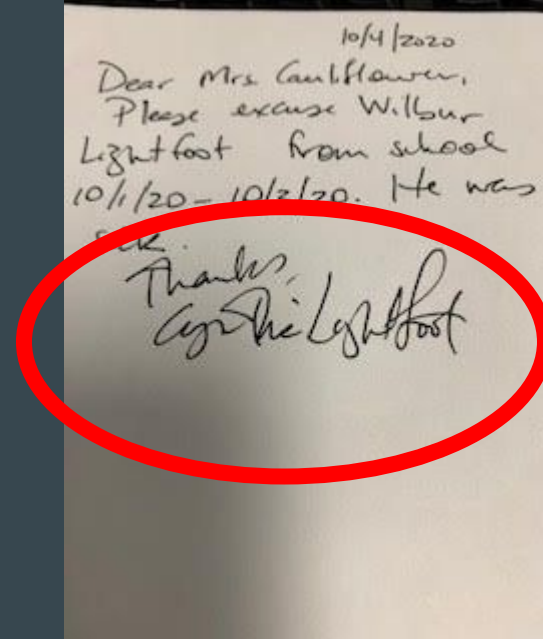 10/4/2020
Dear Mrs. Cauliflower,
Please excuse Wilbur
Lightfoot from school
10/1/20 - 10/2/20. He was
sick.
Thanks,
Cynthia Lightfoot